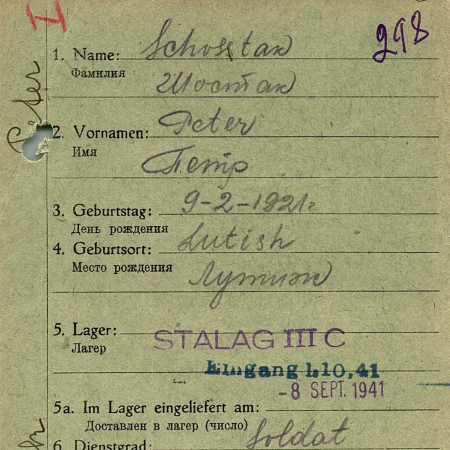 298
1. Name: Schostak
Фамилия
Шостак
Peter
2. Vornamen: Peter
Имя
Петр
3. Geburtstag: 9-2-1921г
День рождения
4. Geburtsort: Lutish
Место рождения
Лутиж
5. Lager: STALAG III C
Лагер
Eingang 1.10.41
-8 SEPT. 1941
5a. Im Lager eingeliefert am:
Доставлен в лагер (число)
6. Dienstgrad: Soldat